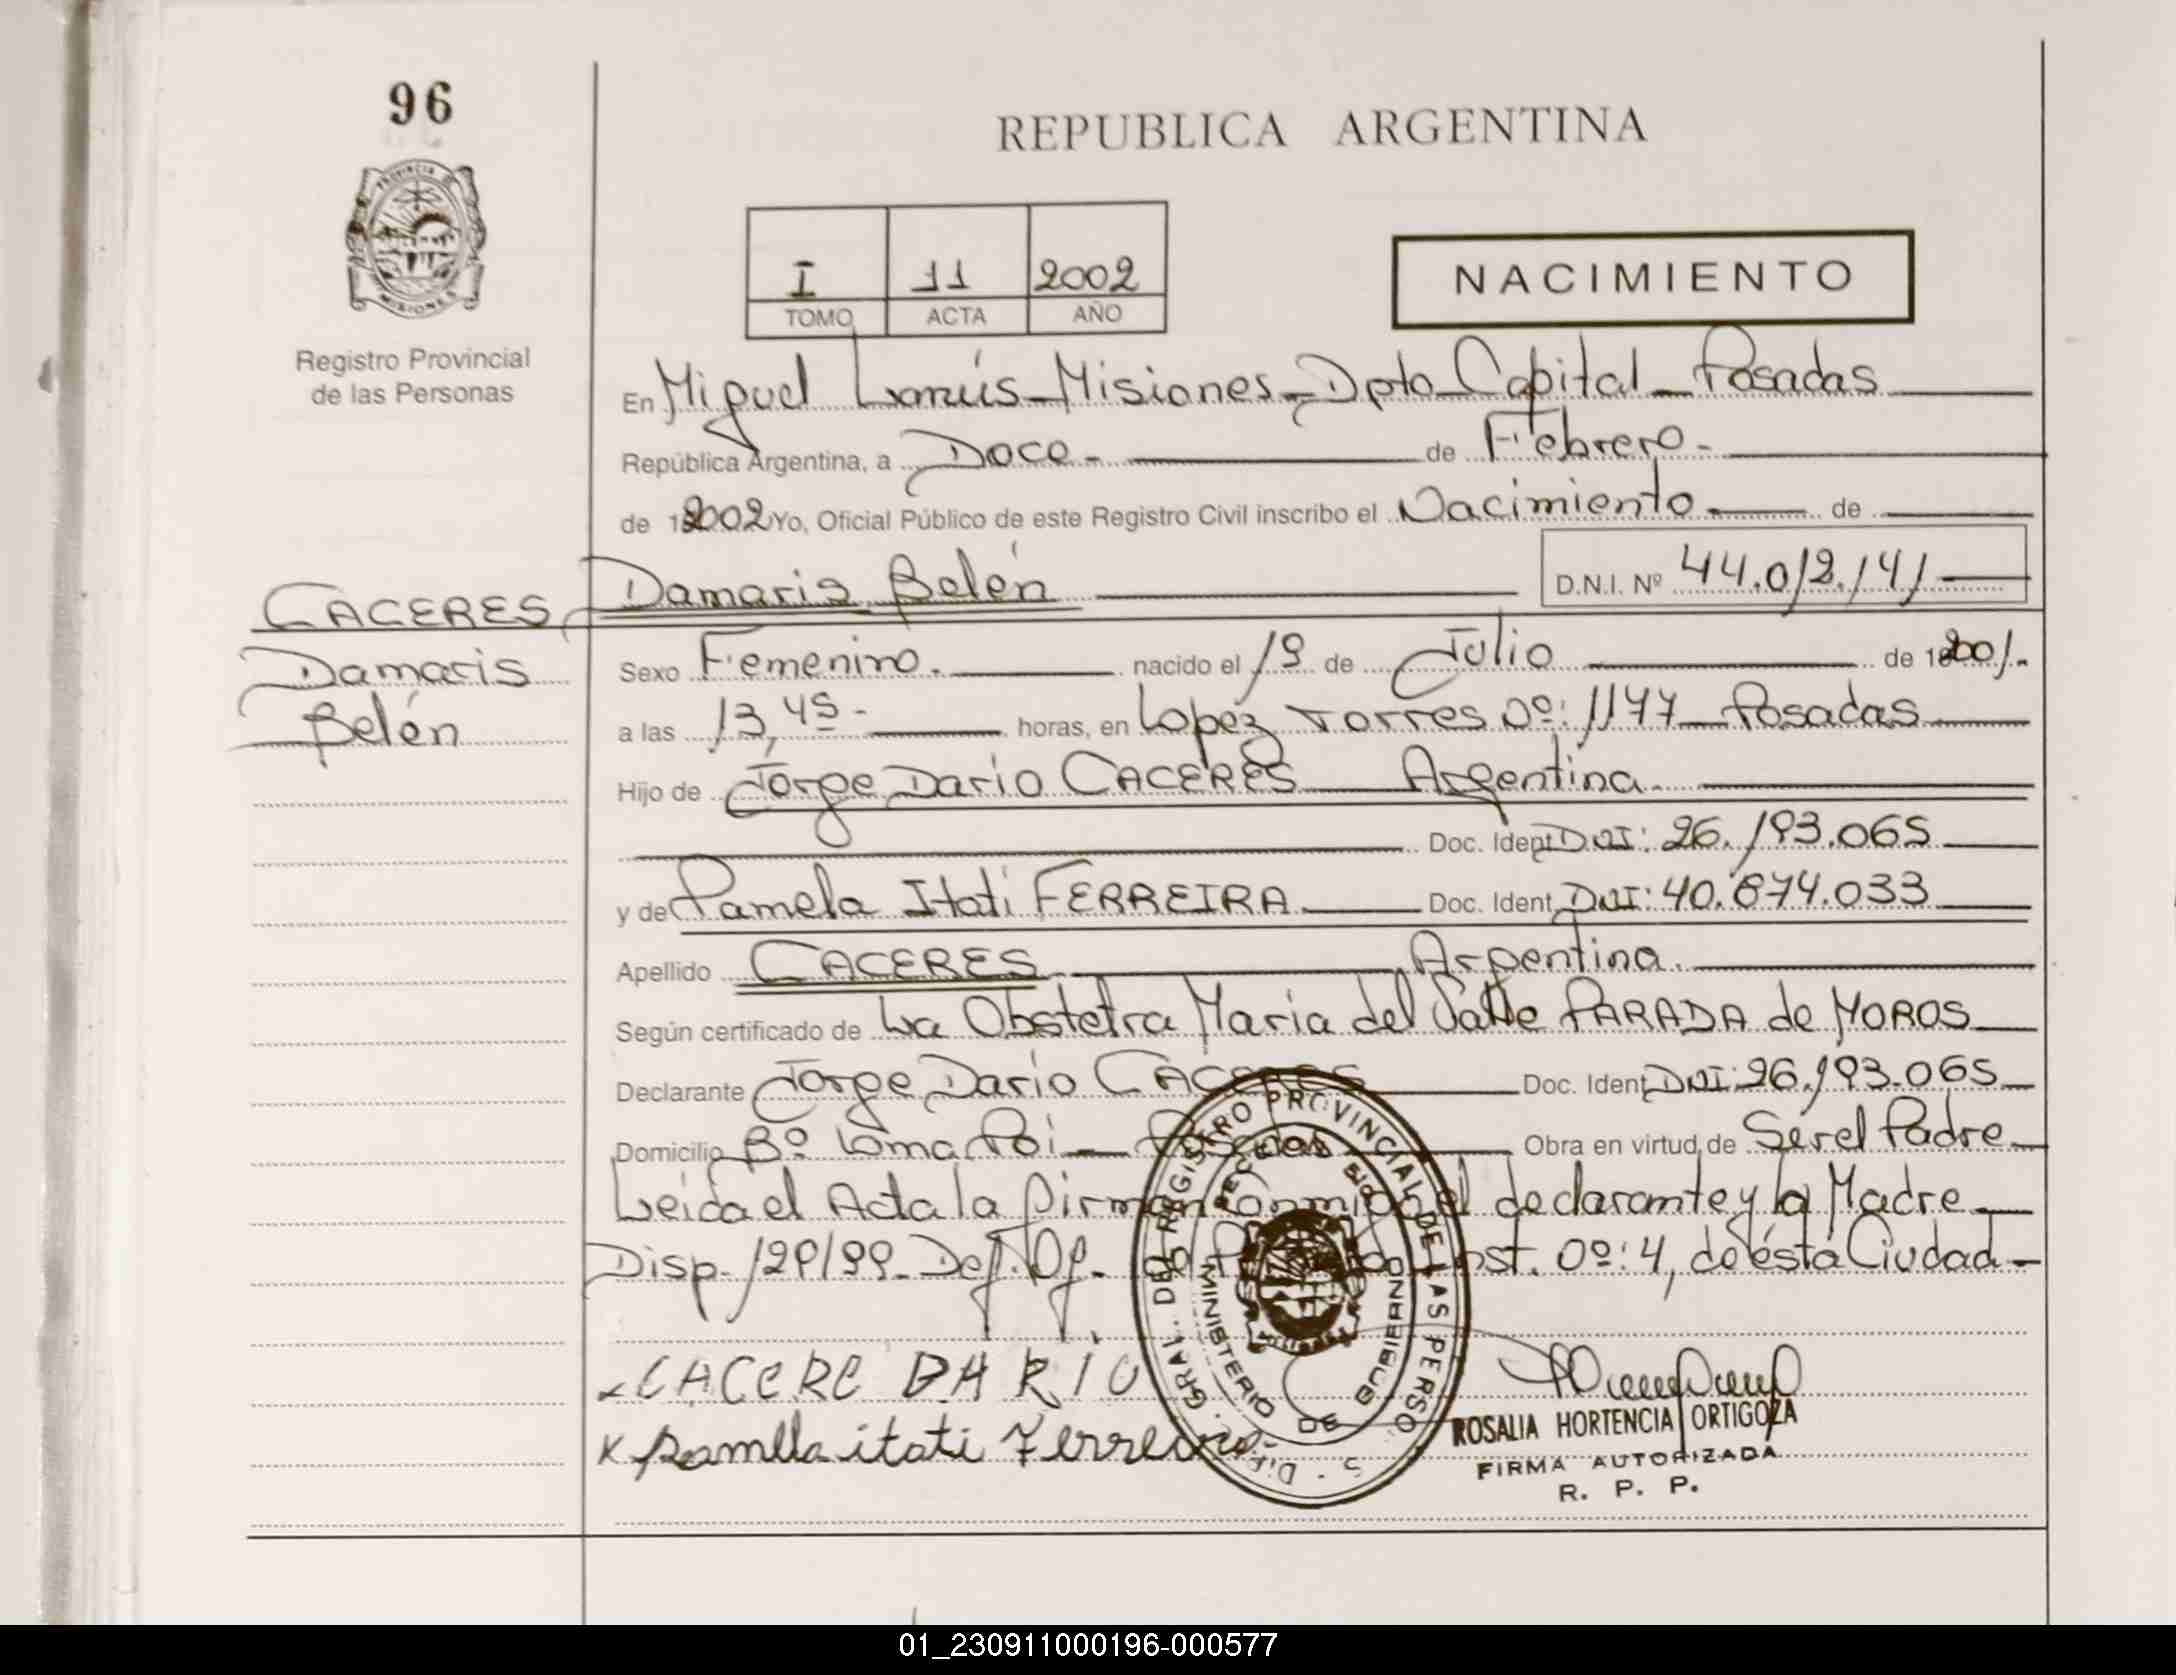 96
REPUBLICA ARGENTINA
PROVINCIA DE
MISIONES
Registro Provincial
de las Personas
I 11 2002
TOMO ACTA AÑO
NACIMIENTO
En Miguel Lanús - Misiones - Dpto Capital - Posadas
República Argentina, a Doce - de Febrero -
de 2002 Yo, Oficial Público de este Registro Civil inscribo el Nacimiento de
Damaris Belén D.N.I. Nº 44.012.141
CACERES
Damaris
Belén
Sexo Femenino. nacido el 19 de Julio de 2001.
a las 13,45 - horas, en Lopez Torres Nº: 1177 - Posadas
Hijo de Jorge Dario CACERES Argentina.
Doc. Ident DNI: 26.193.065
y de Pamela Itati FERREIRA Doc. Ident DNI: 40.874.033
Apellido CACERES Argentina.
Según certificado de La Obstetra Maria del Valle PARADA de MOROS
Declarante Jorge Dario CACERES Doc. Ident DNI: 26.193.065
Domicilio Bº Loma Poi - Posadas Obra en virtud de Ser el Padre
Leida el Acta la firman conmigo el declarante y la Madre
Disp. 129/99 - Def. Of. de Inst. Nº: 4, de ésta Ciudad -
x CACERE DARIO
x Pamella itati Ferreira
DIR. GRAL. DEL REGISTRO PROVINCIAL DE LAS PERSONAS
MINISTERIO DE GOBIERNO
ROSALIA HORTENCIA ORTIGOZA
FIRMA AUTORIZADA
R. P. P.
01_230911000196-000577